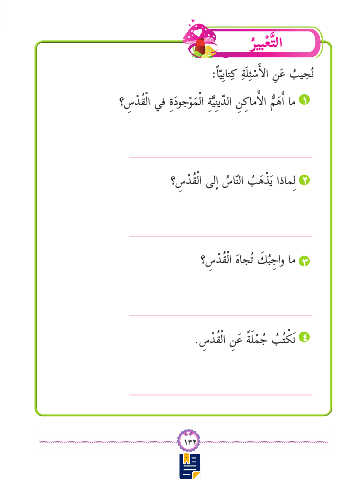 التَّعْبيرُ
نُجيبُ عَنِ الأَسْئِلَةِ كِتابِيّاً:
١ ما أَهَمُّ الأَماكِنِ الدّينِيَّةِ الْمَوْجودَةِ في الْقُدْسِ؟
٢ لِماذا يَذْهَبُ النّاسُ إلى الْقُدْسِ؟
٣ ما واجِبُكَ تُجاهَ الْقُدْسِ؟
٤ نَكْتُبُ جُمْلَةً عَنِ الْقُدْسِ.
١٣٢